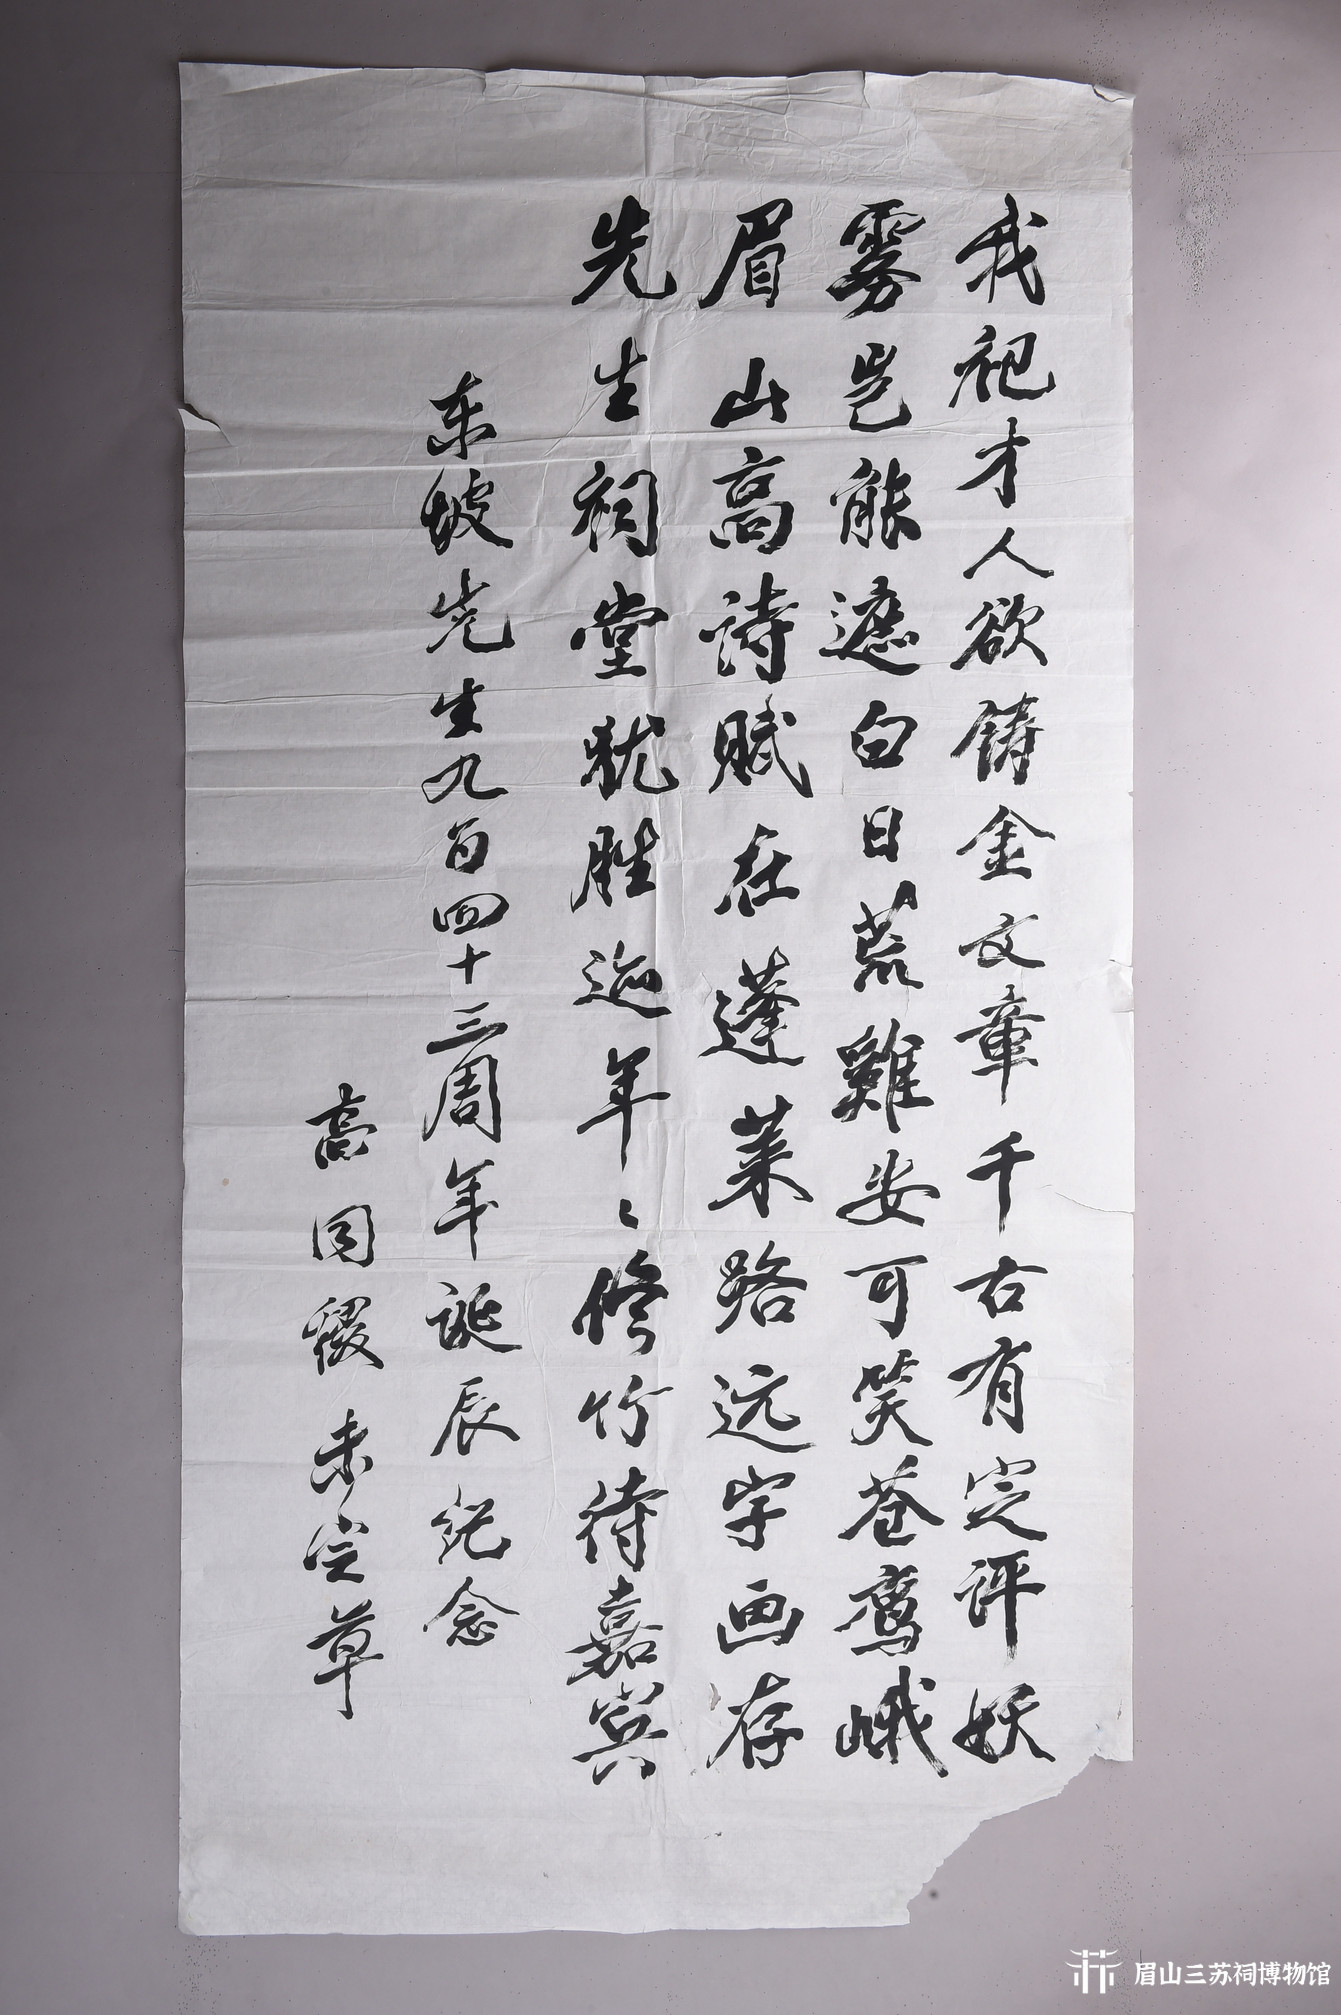 我祀才人欲铸金文章千古有定评妖
雾岂能遮白日荒雞安可笑苍鹰峨
眉山高诗赋在蓬莱路远字画存
先生祠堂犹胜迹年々修竹待嘉宾
东坡先生九百四十三周年诞辰纪念
高同 未定草
眉山三苏祠博物馆